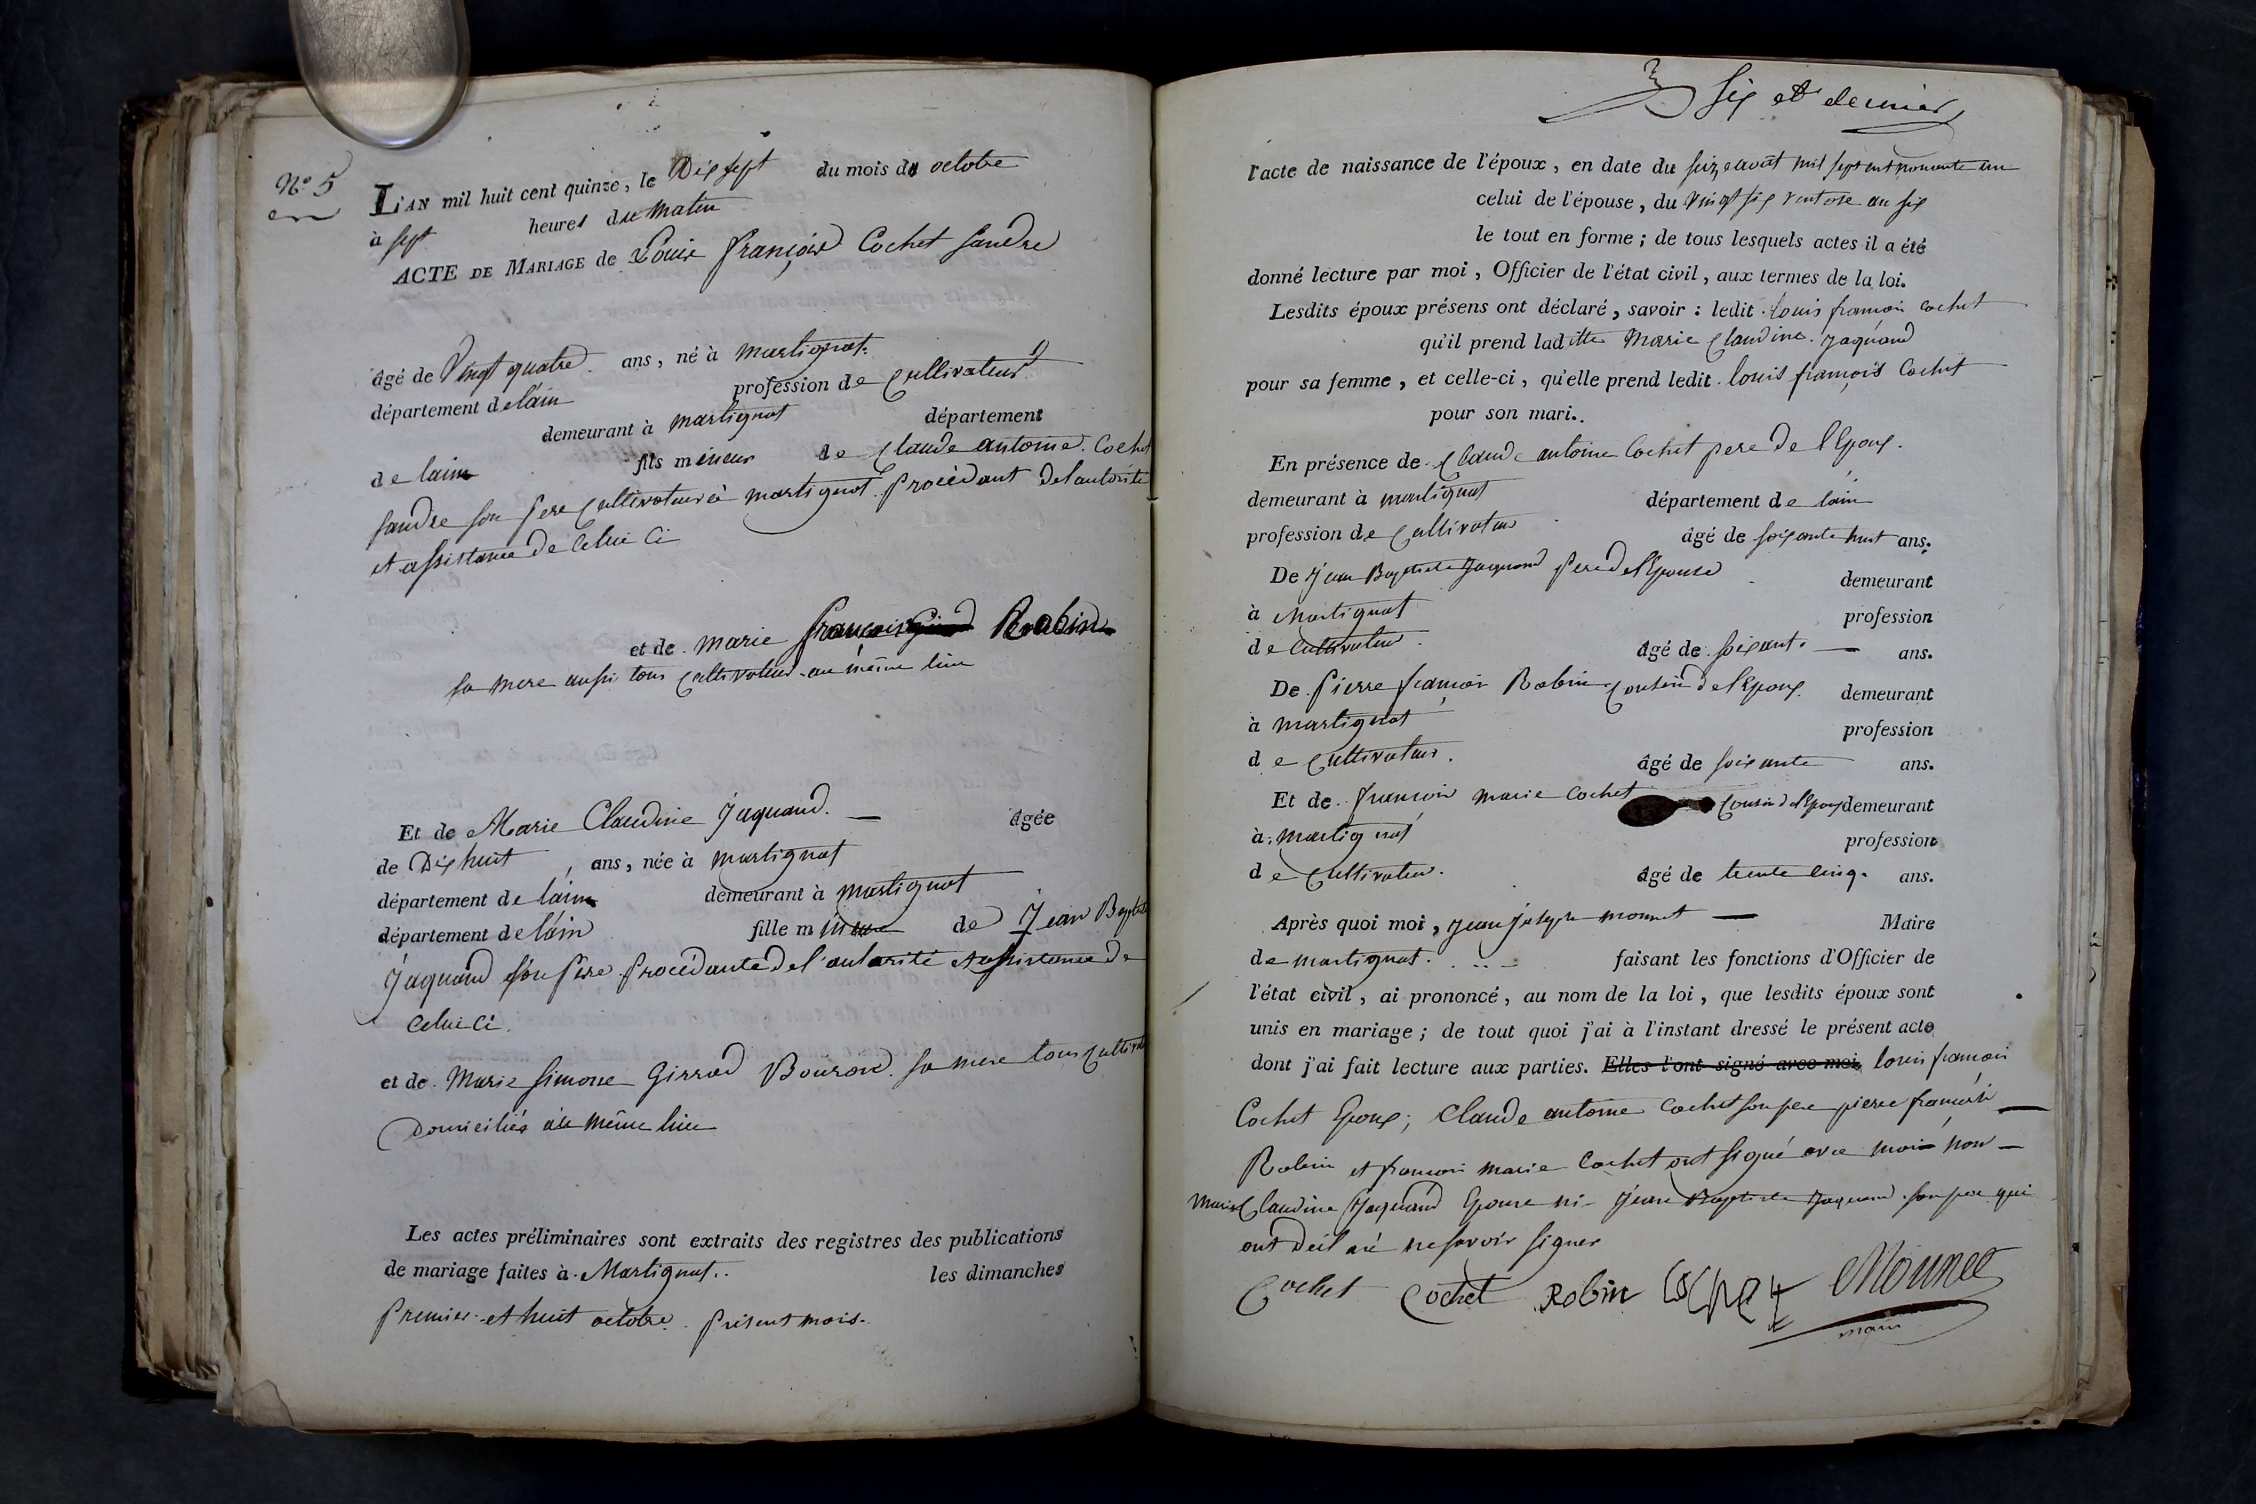 N° 5
L'AN mil huit cent quinze, le Dix sept du mois de octobre
à sept heures du matin
ACTE DE MARIAGE de Louis françois Cochet Sandre
âgé de Vingt quatre ans, né à martignat
département de lain profession de Cultivateur
demeurant à martignat département
de lain fils mineur de Claude antoine Cochet
Sandre son pere Cultivateur à martignat procédant de l'autorité
et assistance de Celui Ci
et de marie françoise Robin
sa mere aussi tous Cultivateurs au même lieu
Et de Marie Claudine Jaquand. — âgée
de Dix huit, ans, née à martignat
département de lain demeurant à martignat
département de lain fille mineure de Jean Baptiste
Jaquand son père procédante de l'autorité et assistance de
Celui Ci.
et de Marie Simone Girrod Bouron sa mere tous Cultivateurs
Domiciliés au même lieu
Les actes préliminaires sont extraits des registres des publications
de mariage faites à Martignat. les dimanches
premier et huit octobre présent mois.
Six et dernier
l'acte de naissance de l'époux, en date du seize avout mil sept cent nonante un
celui de l'épouse, du Vingt six ventose an six
le tout en forme ; de tous lesquels actes il a été
donné lecture par moi, Officier de l'état civil, aux termes de la loi.
Lesdits époux présens ont déclaré, savoir : ledit louis françois Cochet
qu'il prend ladite Marie Claudine Jaquand
pour sa femme, et celle-ci, qu'elle prend ledit louis françois Cochet
pour son mari.
En présence de Claude antoine Cochet pere de l'Epoux.
demeurant à martignat département de lain
profession de Cultivateur âgé de soixante huit ans.
De Jean Baptiste Jaquand pere de l'Epouse demeurant
à Martignat profession
de Cultivateur. âgé de soixante — ans.
De pierre françois Robin Cousin de l'Epoux demeurant
à martignat profession
de Cultivateur. âgé de soixante ans.
Et de françois marie Cochet Cousin de l'Epoux demeurant
à martignat profession
de Cultivateur. âgé de trente cinq. ans.
Après quoi moi, Jean Joseph monnet — Maire
de martignat. faisant les fonctions d'Officier de
l'état civil, ai prononcé, au nom de la loi, que lesdits époux sont
unis en mariage ; de tout quoi j'ai à l'instant dressé le présent acte
dont j'ai fait lecture aux parties. Elles l'ont signé avec moi, louis françois
Cochet Epoux ; Claude antoine Cochet son pere pierre françois —
Robin et françois marie Cochet ont signé avec moi non —
marie Claudine Jaquand Epouse ni Jean Baptiste Jaquand son pere qui
ont declaré ne savoir signer
Cochet Cochet Robin Cochet Monnet
maire